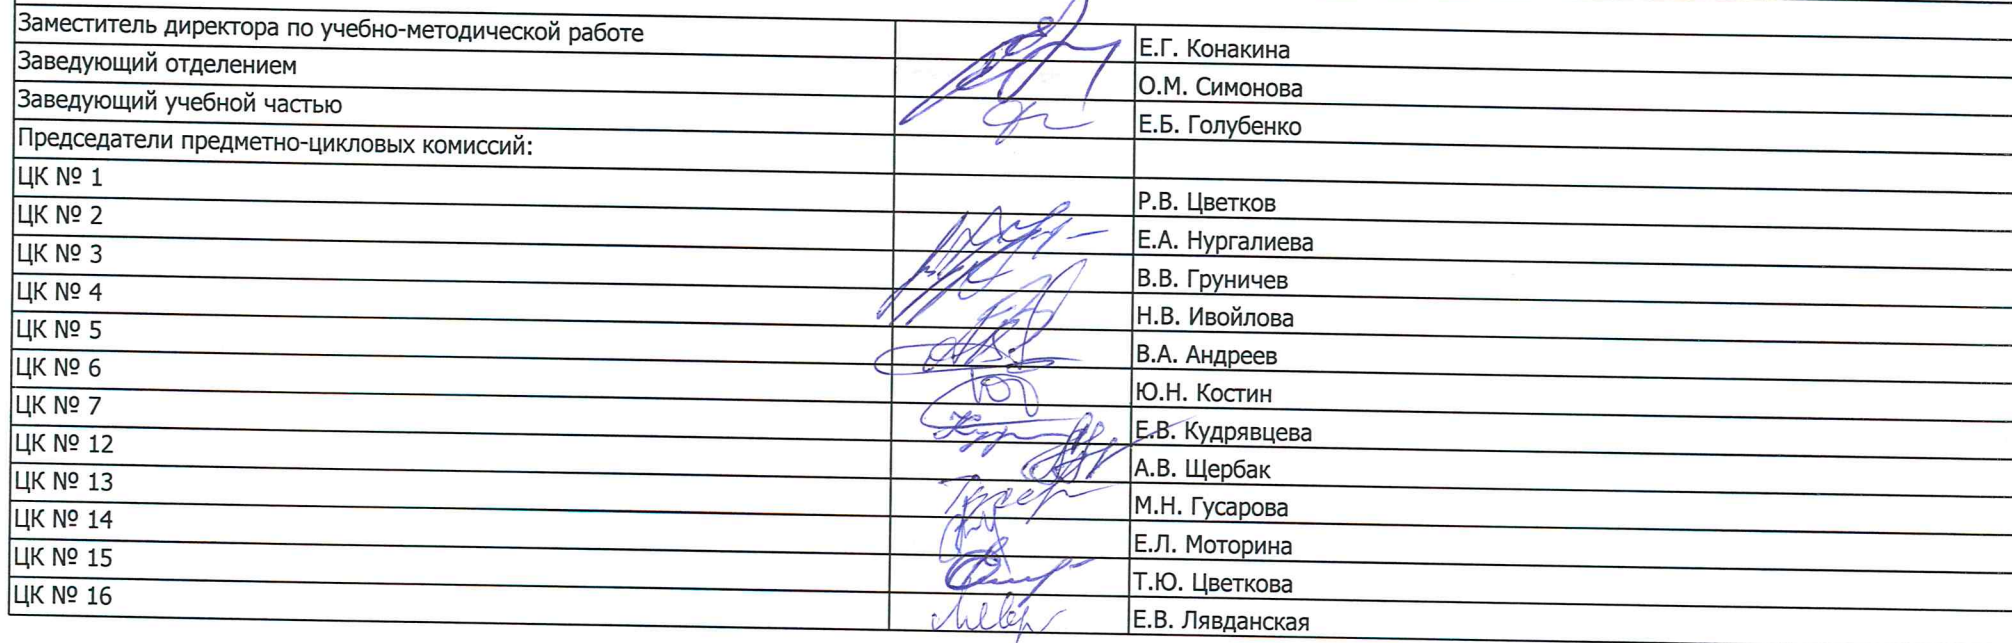 Заместитель директора по учебно-методической работе Е.Г. Конакина
Заведующий отделением О.М. Симонова
Заведующий учебной частью Е.Б. Голубенко
Председатели предметно-цикловых комиссий:
ЦК № 1 Р.В. Цветков
ЦК № 2 Е.А. Нургалиева
ЦК № 3 В.В. Груничев
ЦК № 4 Н.В. Ивойлова
ЦК № 5 В.А. Андреев
ЦК № 6 Ю.Н. Костин
ЦК № 7 Е.В. Кудрявцева
ЦК № 12 А.В. Щербак
ЦК № 13 М.Н. Гусарова
ЦК № 14 Е.Л. Моторина
ЦК № 15 Т.Ю. Цветкова
ЦК № 16 Е.В. Лявданская